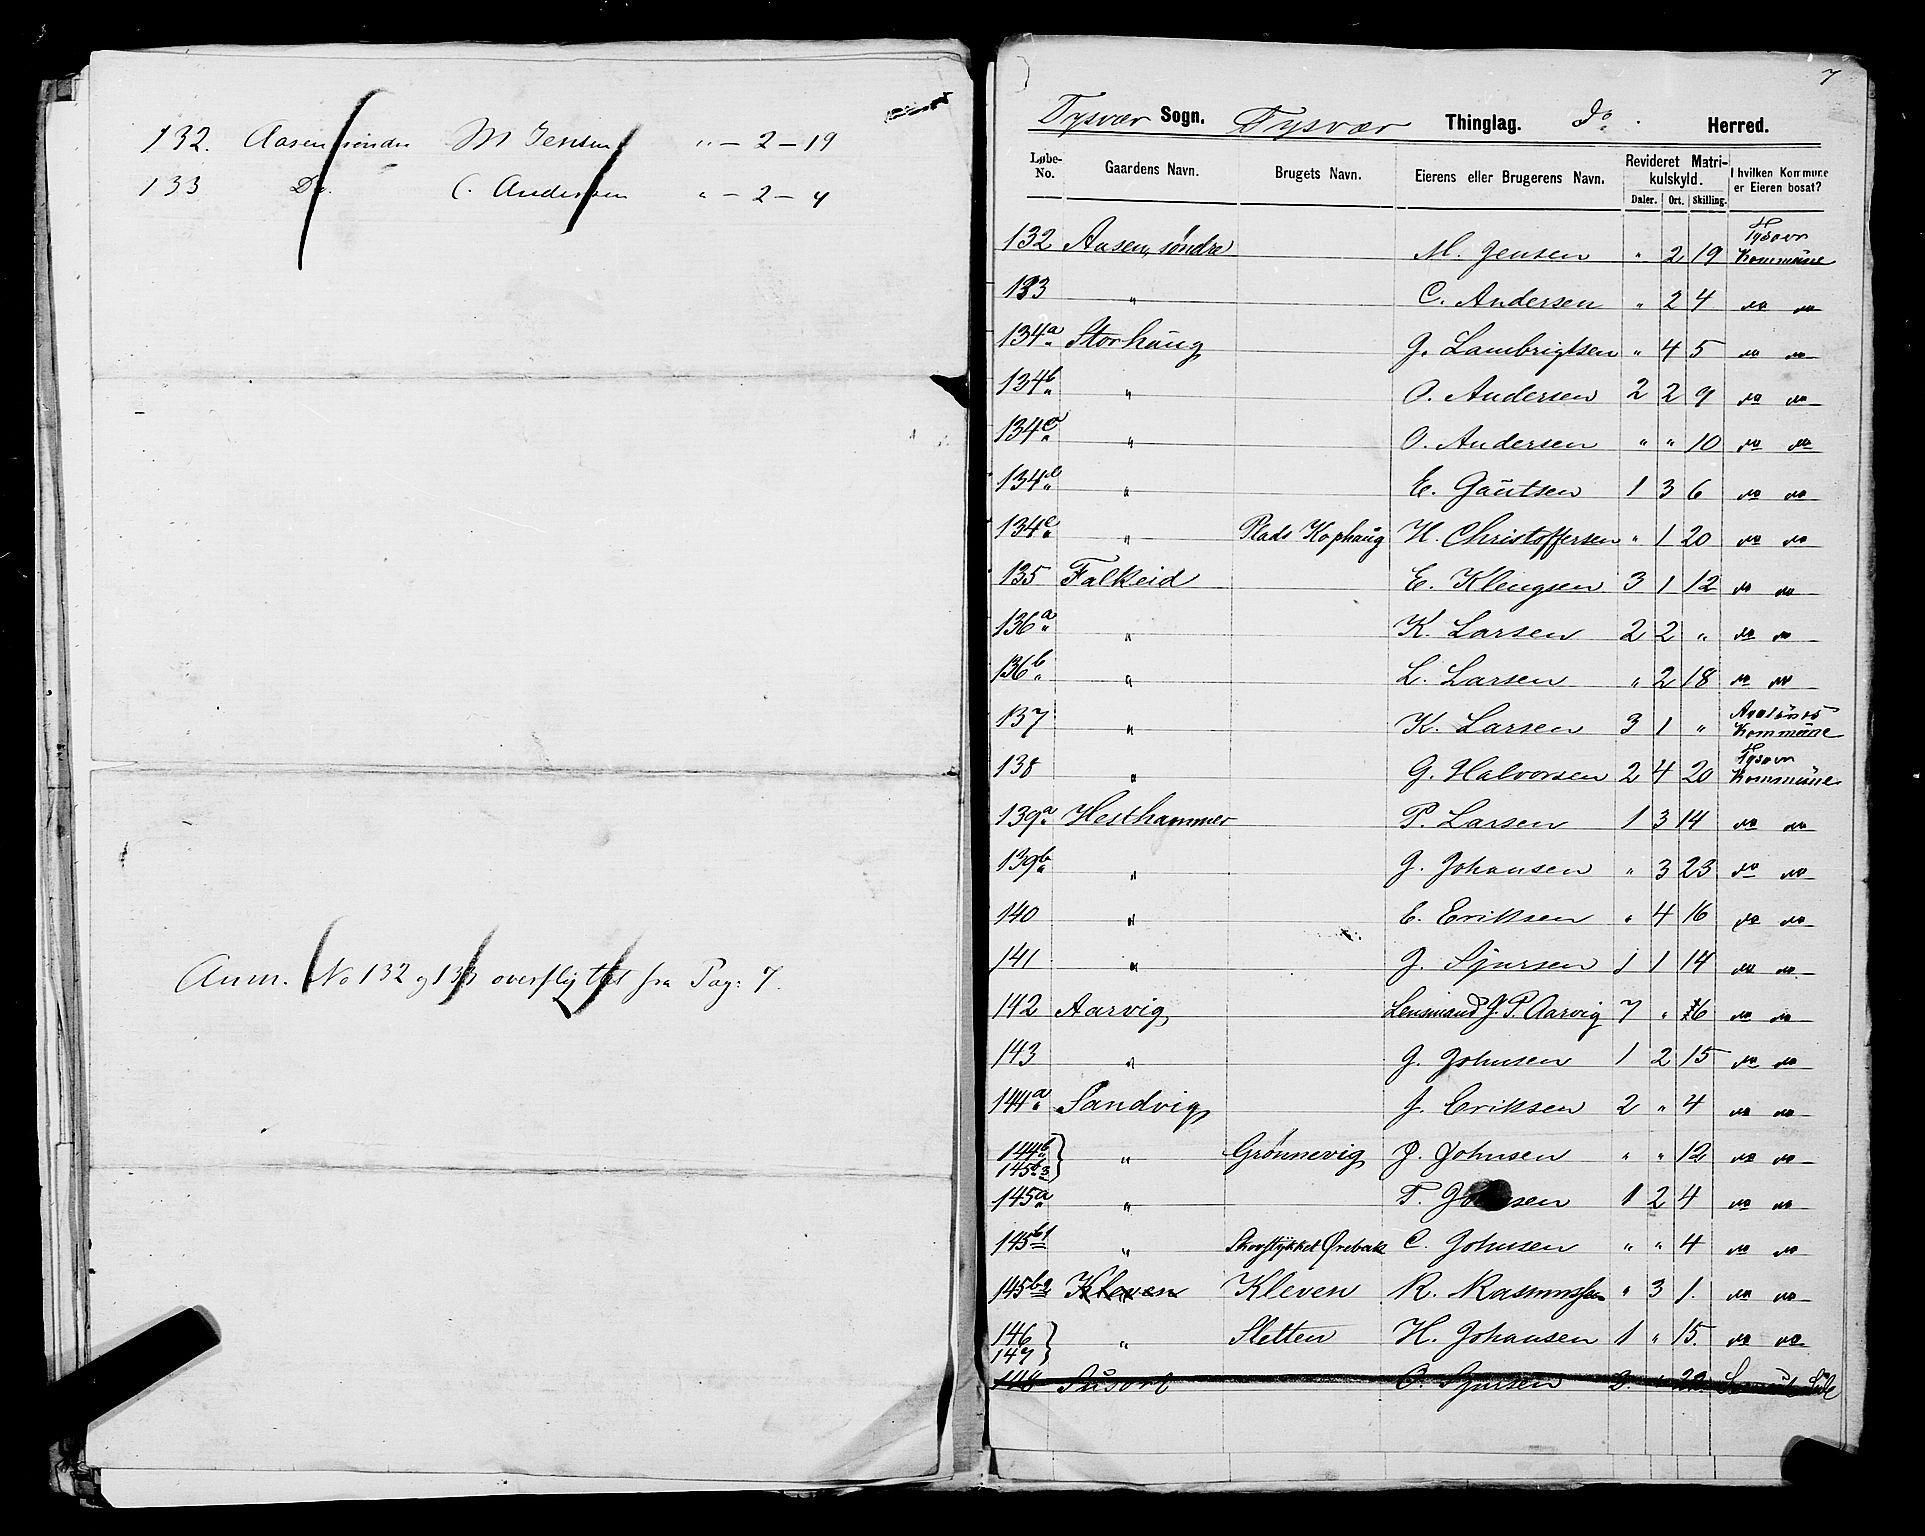 132. Aasen søndre M Jensen " - 2 - 19
133 Do. C. Andersen " - 2 - 4
Anm. No 132 og 133 overflyttet fra Pag: 7.
7
Tysvær Sogn. Tysvær Thinglag. Do. Herred.
Løbe-No. Gaardens Navn. Brugets Navn. Eierens eller Brugerens Navn. Revideret Matrikulskyld. I hvilken Kommune er Eieren bosat?
Daler. Ort. Skilling.
132 Aasen, søndre M. Jensen " 2 19 Tysvær Kommune
133 " C. Andersen " 2 4 do do
134a Storhaug G. Lambrigtsen " 4 5 do do
134b " O. Andersen 2 2 9 do do
134c " O. Andersen " " 10 do do
134d " E. Gautsen 1 3 6 do do
134e " Plads Kophaug H. Christoffersen " 1 20 do do
135 Falkeid E. Klengsen 3 1 12 do do
136a " K. Larsen 2 2 " do do
136b " L. Larsen " 2 18 do do
137 " K. Larsen 3 1 " Avaldsnes Kommune
138 " G. Halvorsen 2 4 20 Tysvær Kommune
139a Hesthammer P. Larsen 1 3 14 do do
139b " J. Johansen " 3 23 do do
140 " E. Eriksen " 4 16 do do
141 " J. Sjursen 1 1 14 do do
142 Aarvig Lensmand J. P. Aarvig 7 " 16 do do
143 " J. Johnsen 1 2 15 do do
144a Sandvig J. Eriksen 2 " 4 do do
144b 145b3 " Grønnevig J. Johnsen " " 12 do do
145a " T. Johnsen 1 2 4 do do
145b1 " Skovstykket Ørebek C. Johnsen " " 4 do do
145b2 Kleven Kleven R. Rasmussen " 3 1. do do
146 147 " Sletten H. Johansen 1 " 15. do do
148 Susort O. Sjursen 3. " 22